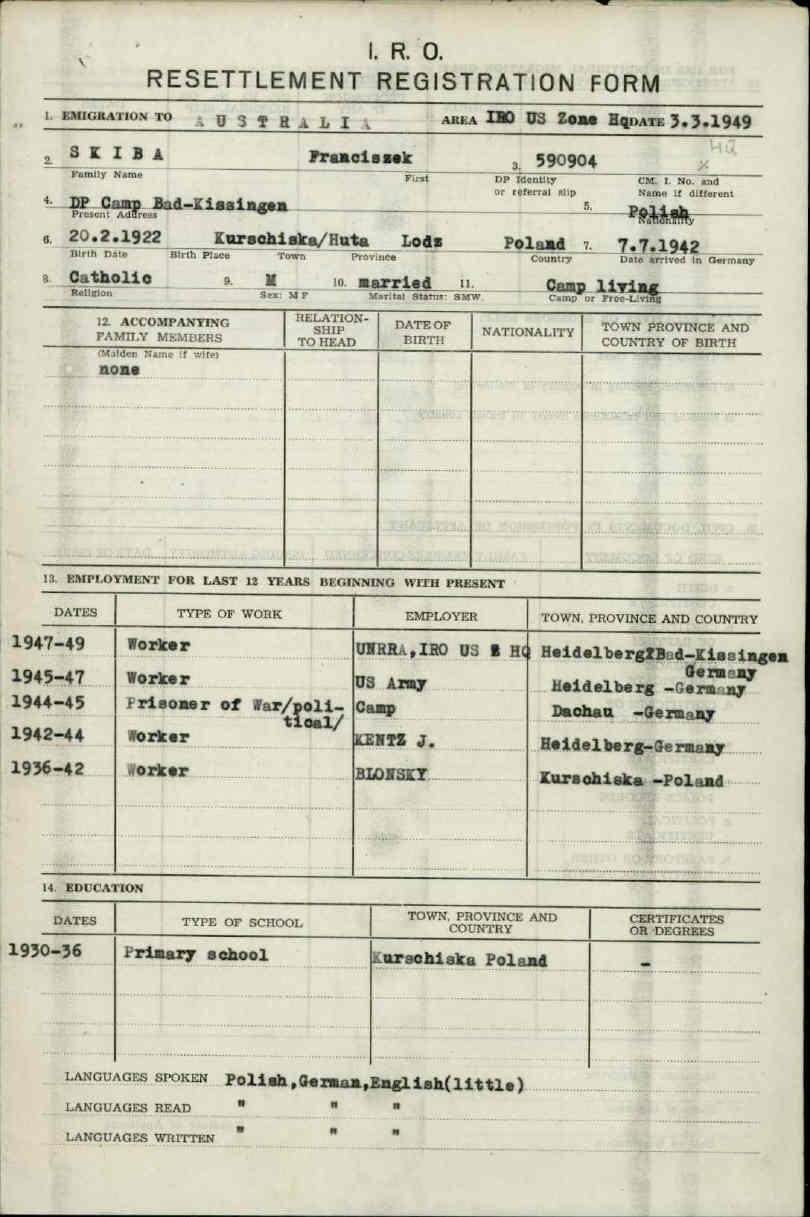 I. R. O.
RESETTLEMENT REGISTRATION FORM
1. EMIGRATION TO AUSTRALIA AREA IRO US Zone Hq DATE 3.3.1949
HQ
2. SKIBA Franciszek 3. 590904
Family Name First DP Identity or referral slip CM. I. No. and Name if different
4. DP Camp Bad-Kissingen 5. Polish
Present Address Nationality
6. 20.2.1922 Kurschiska/Huta Lodz Poland 7. 7.7.1942
Birth Date Birth Place Town Province Country Date arrived in Germany
8. Catholic 9. M 10. married 11. Camp living
Religion Sex: M F Marital Status: SMW. Camp or Free-Living
12. ACCOMPANYING FAMILY MEMBERS RELATION-SHIP TO HEAD DATE OF BIRTH NATIONALITY TOWN PROVINCE AND COUNTRY OF BIRTH
(Maiden Name if wife)
none
13. EMPLOYMENT FOR LAST 12 YEARS BEGINNING WITH PRESENT
DATES TYPE OF WORK EMPLOYER TOWN, PROVINCE AND COUNTRY
1947-49 Worker UNRRA,IRO US HQ Heidelberg Bad-Kissingen
Germany
1945-47 Worker US Army Heidelberg -Germany
1944-45 Prisoner of War/poli- Camp Dachau -Germany
tical/
1942-44 Worker KENTZ J. Heidelberg-Germany
1936-42 Worker BLONSKY Kurschiska -Poland
14. EDUCATION
DATES TYPE OF SCHOOL TOWN, PROVINCE AND COUNTRY CERTIFICATES OR DEGREES
1930-36 Primary school Kurschiska Poland -
LANGUAGES SPOKEN Polish,German,English(little)
LANGUAGES READ " " "
LANGUAGES WRITTEN " " "